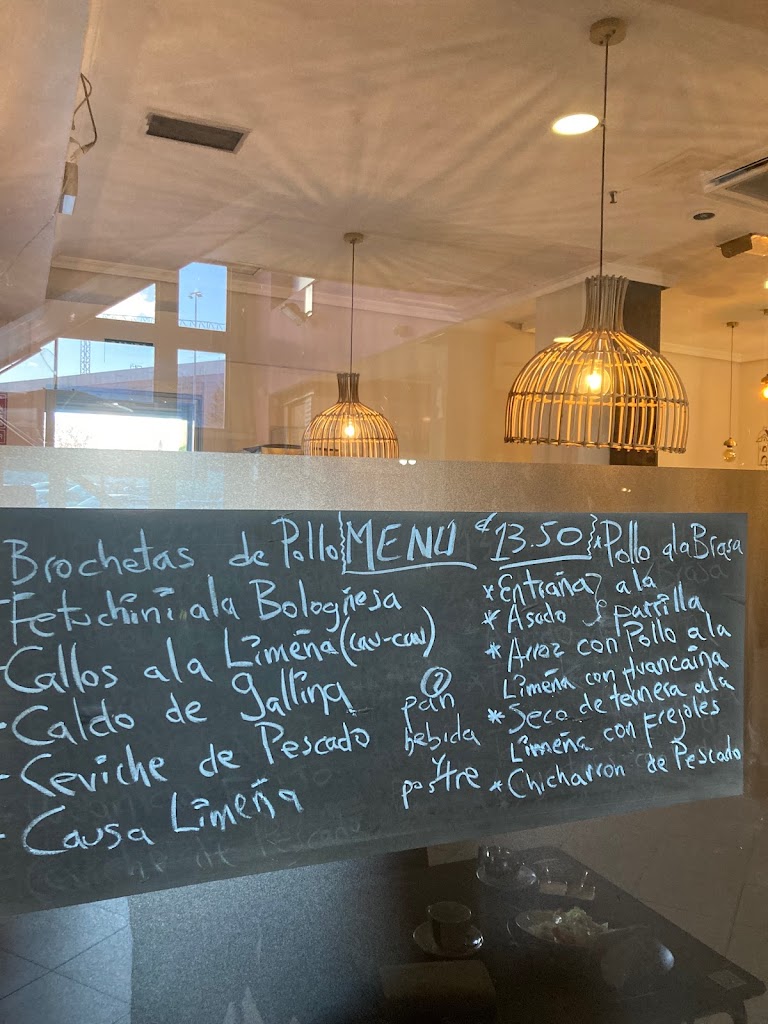 Brochetas de Pollo
- Fetuchini ala Bologñesa
- Callos ala Limeña (cau-cau)
- Caldo de gallina
- Ceviche de Pescado
- Causa Limeña
MENU € 13.50
pan
bebida
y
postre
* Pollo ala Brasa
* Entraña } ala
* Asado } parrilla
* Arroz con Pollo ala
Limeña con Huancaina
* Seco de ternera ala
Limeña con frejoles
* Chicharron de Pescado